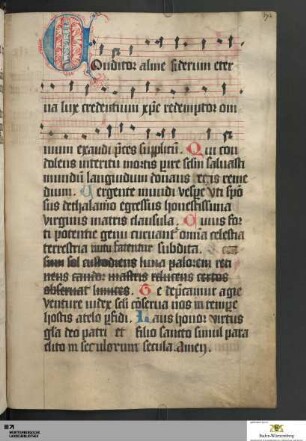 Conditor alme siderum eter
na lux credentium xpe redemptor om
nium exaudi pces supplicu. Qui con
dolens interitu mortis pire seclm saluasti
mundu languidum donans reis reme
dium. Vergente mundi vespe vti spo
sus dethalamo egressus honestissima
virginis matris clausula. Cuius for
ti potentie genu curuant omia celestia
terrestria nutu fatentur subdita.
sum sol custodiens luna palorem reti
nens candor in astris relucens certos
obseruat limites. Te depcamur agie
venture iudex secli coserua nos in tempe
hostis atelo pfidi. Laus honor virtus
gla deo patri et filio sancto simul para
clito in seculorum secula. Amen.